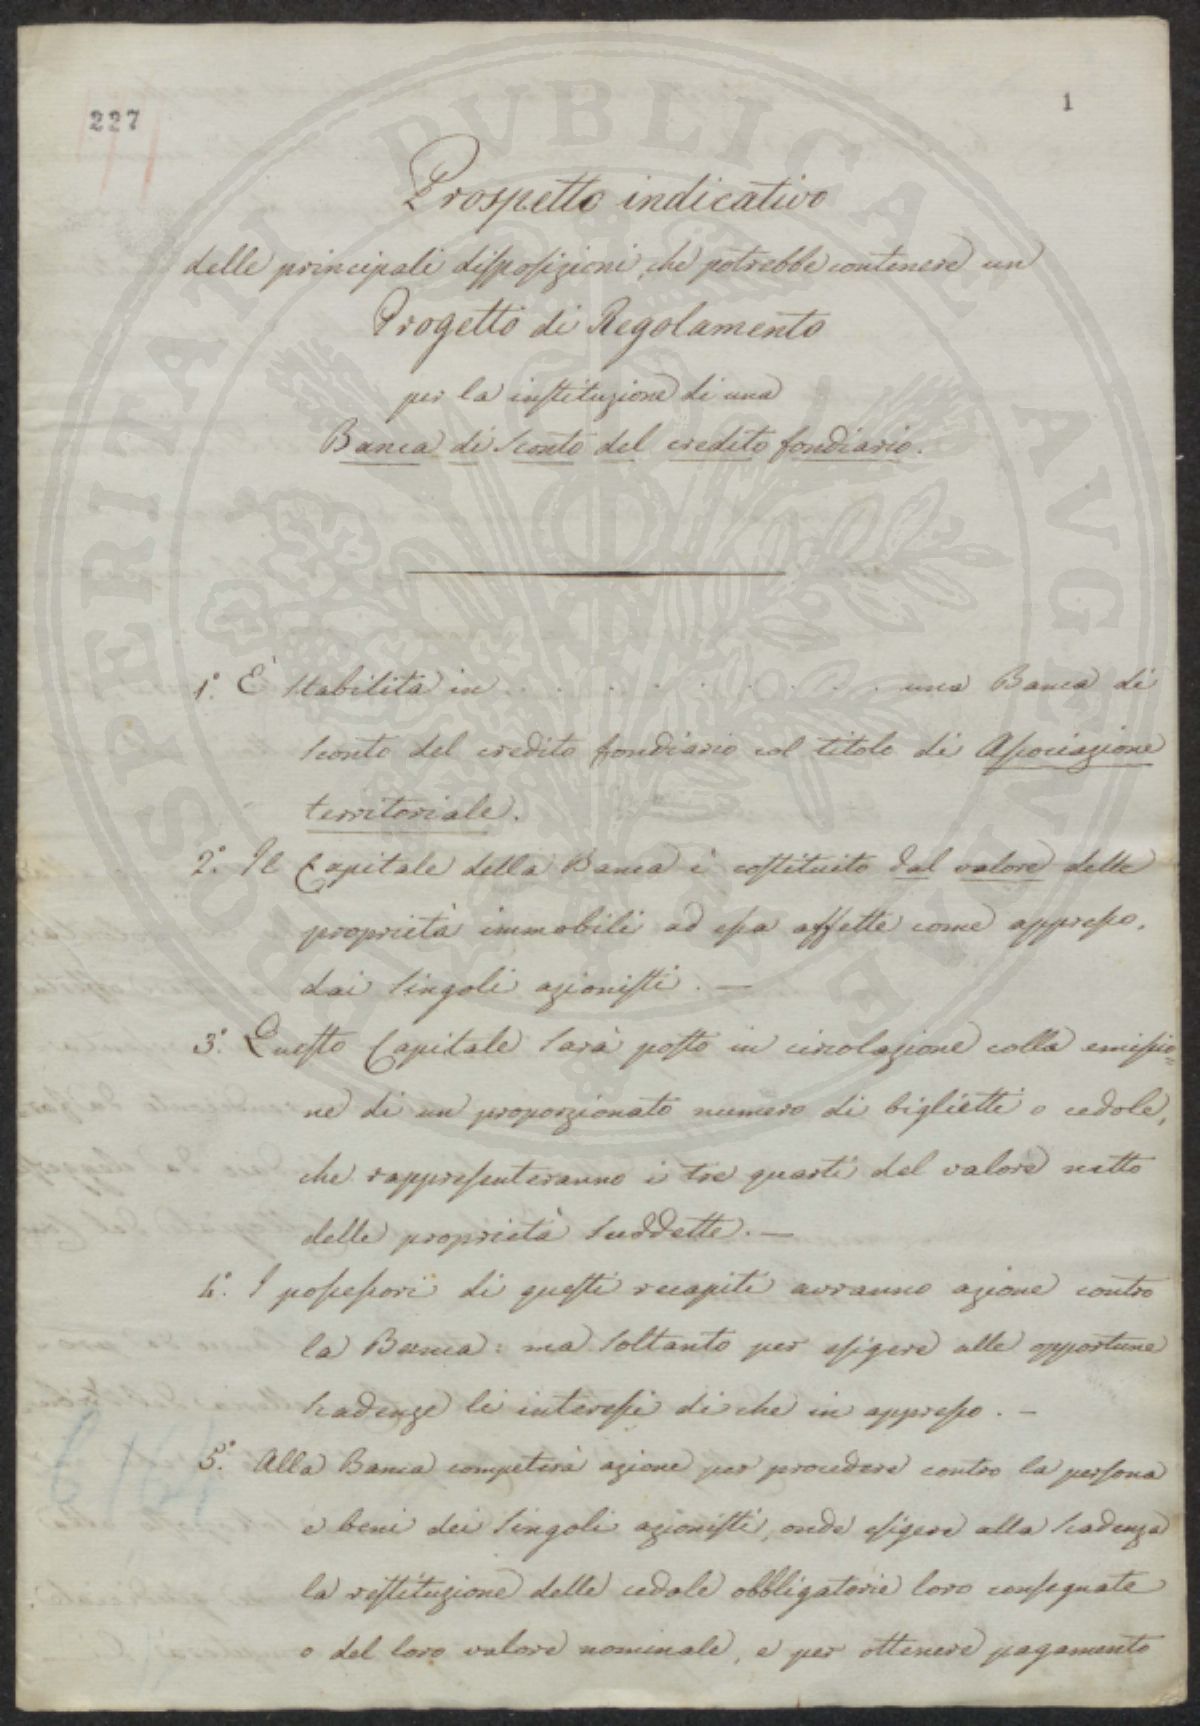 227
1
Prospetto indicativo
delle principali disposizioni, che potrebbe contenere un
Progetto di Regolamento
per la instituzione di una
Banca di Sconto del credito fondiario.
1.° È stabilita in . . . . . . . . . . una Banca di
sconto del credito fondiario col titolo di Associazione
territoriale.
2.° Il Capitale della Banca è costituito dal valore delle
proprietà immobili ad essa affette come appresso,
dai singoli azionisti. —
3.° Questo Capitale sarà posto in circolazione colla emissio=
ne di un proporzionato numero di biglietti o cedole,
che rappresenteranno i tre quarti del valore netto
delle proprietà suddette. —
4.° I possessori di questi recapiti avranno azione contro
la Banca: ma soltanto per esigere alle opportune
scadenze li interessi di che in appresso. —
5.° Alla Banca competerà azione per procedere contro la persona
e beni dei singoli azionisti, onde esigere alla scadenza
la restituzione delle cedole obbligatorie loro consegnate
o del loro valore nominale, e per ottenere pagamento
PROSPERITATI PVBLICAE AVGENDAE